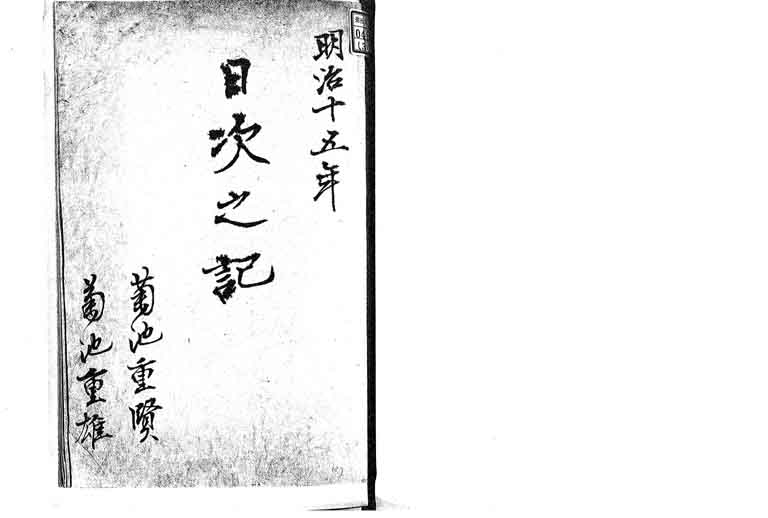 明治十五年
日次之記
菊池重賢
菊池重雄